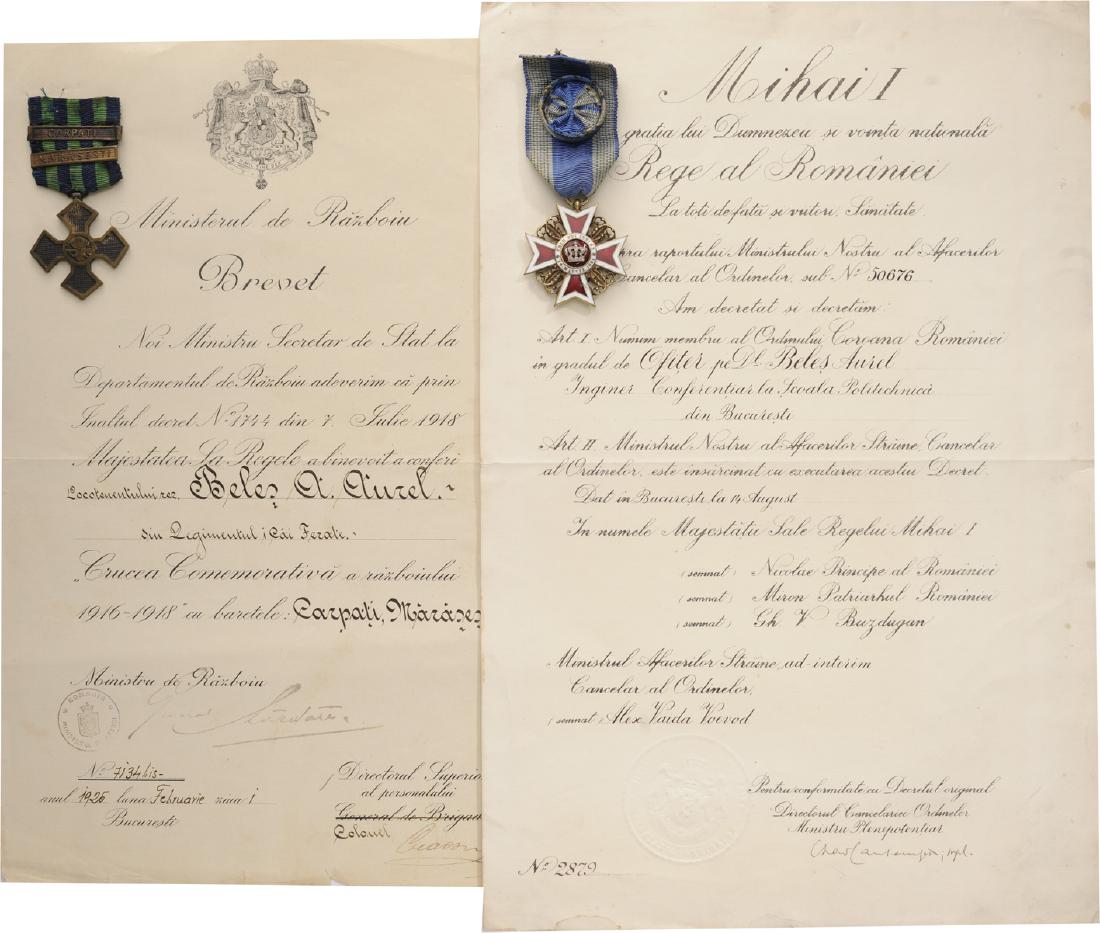 CARPATI
MARASESTI
Ministerul de Războiu
Brevet
Noi Ministru Secretar de Stat la
Departamentul de Războiu adeverim că prin
Inaltul decret No. 1744 din 7. Iulie 1918
Majestatea Sa Regele a binevoit a conferi
Locotenentului rez. Beleș A. Aurel.-
din Regimentul 1 Căi Ferate.-
„Crucea Comemorativă a războiului
1916-1918" cu baretele: Carpați, Mărășeș
Ministru de Războiu
General
ROMANIA
No. 7134 bis-
anul 1925 luna Februarie ziua 1
București
Directorul Superio
al personalului
General de Brigad
Colonel
Mihai I
grația lui Dumnezeu și voința națională
Rege al României
La toți de față și viitori, Sănătate
pra raportului Ministrului Nostru al Afacerilor
Cancelar al Ordinelor, sub No. 50676
Am decretat și decretăm:
Art. I. Numim membru al Ordinului Coroana României
in gradul de Ofițer pe Dl. Beleș Aurel
Inginer Conferențiar la Școala Politechnică
din București
Art. II Ministrul Nostru al Afacerilor Străine, Cancelar
al Ordinelor, este însărcinat cu executarea acestui Decret.
Dat in București, la 14 August
In numele Majestății Sale Regelui Mihai I
(semnat) Nicolae Principe al României
(semnat) Miron Patriarhul României
(semnat) Gh. V. Buzdugan
Ministrul Afacerilor Străine, ad-interim
Cancelar al Ordinelor,
(semnat) Alex Vaida Voevod
Pentru conformitate cu Decretul original
Directorul Cancelariei Ordinelor
Ministru Plenipotențiar
No. 2879